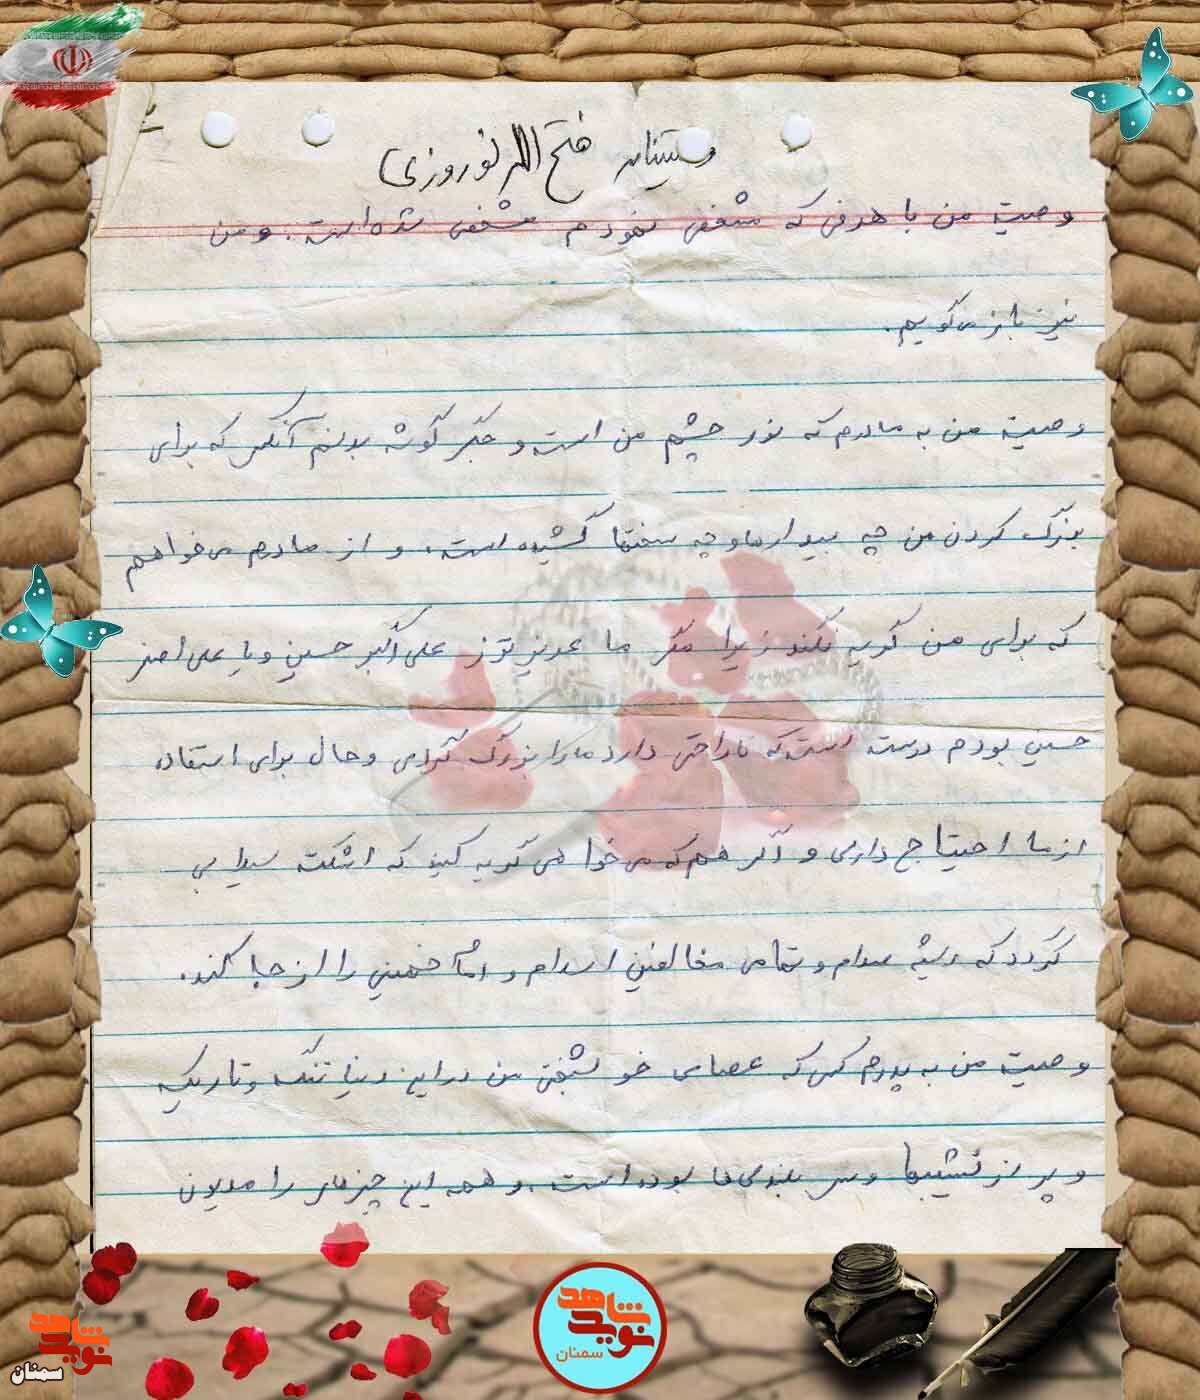 وصیتنامه فتح الله نوروزی
وصیت من با هدفی که مشخص نمودم مشخص شده است. و من
نیز باز می‌گویم.
وصیت من به مادرم که نور چشم من است و جگر گوشه بدنم آنکس که برای
بزرگ کردن من چه بیداریها و چه سختیها کشیده است، و از مادرم می‌خواهم
که برای من گریه نکند زیرا مگر ما عزیزتر از علی اکبر حسین و یا علی اصغر
حسین بودم درست است که ناراحتی دارد ما را بزرگ کردی و حال برای استفاده
از ما احتیاج داری و اگر هم که می‌خواهی گریه کنی که اشکت سیلابی
گردد که ریشه صدام و تمامی مخالفین اسلام و امام خمینی را از جا بکند.
وصیت من به پدرم کسی که عصای خوشبختی من در این دنیا تنگ و تاریکیه
و پر از نشیبها و سر بلندی‌ها بوده است. و همه این چیزها را مدیون
نوید شاهد
سمنان
نوید شاهد
سمنان